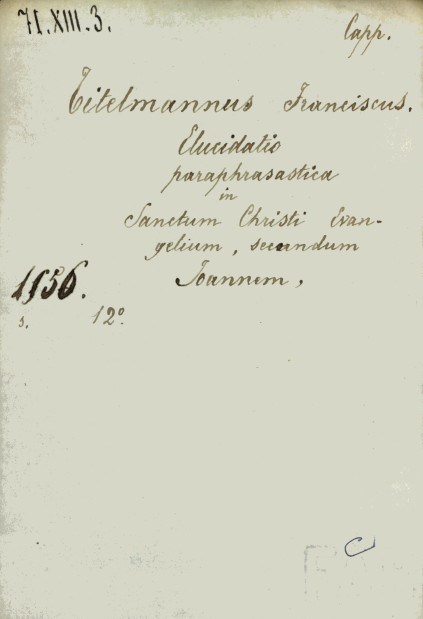 71.XIII.3.
Capp.
Titelmannus Franciscus.
Elucidatio
paraphrasastica
in
Sanctum Christi Evan-
gelium, secundum
Joannem,
1556.
s. 12°.